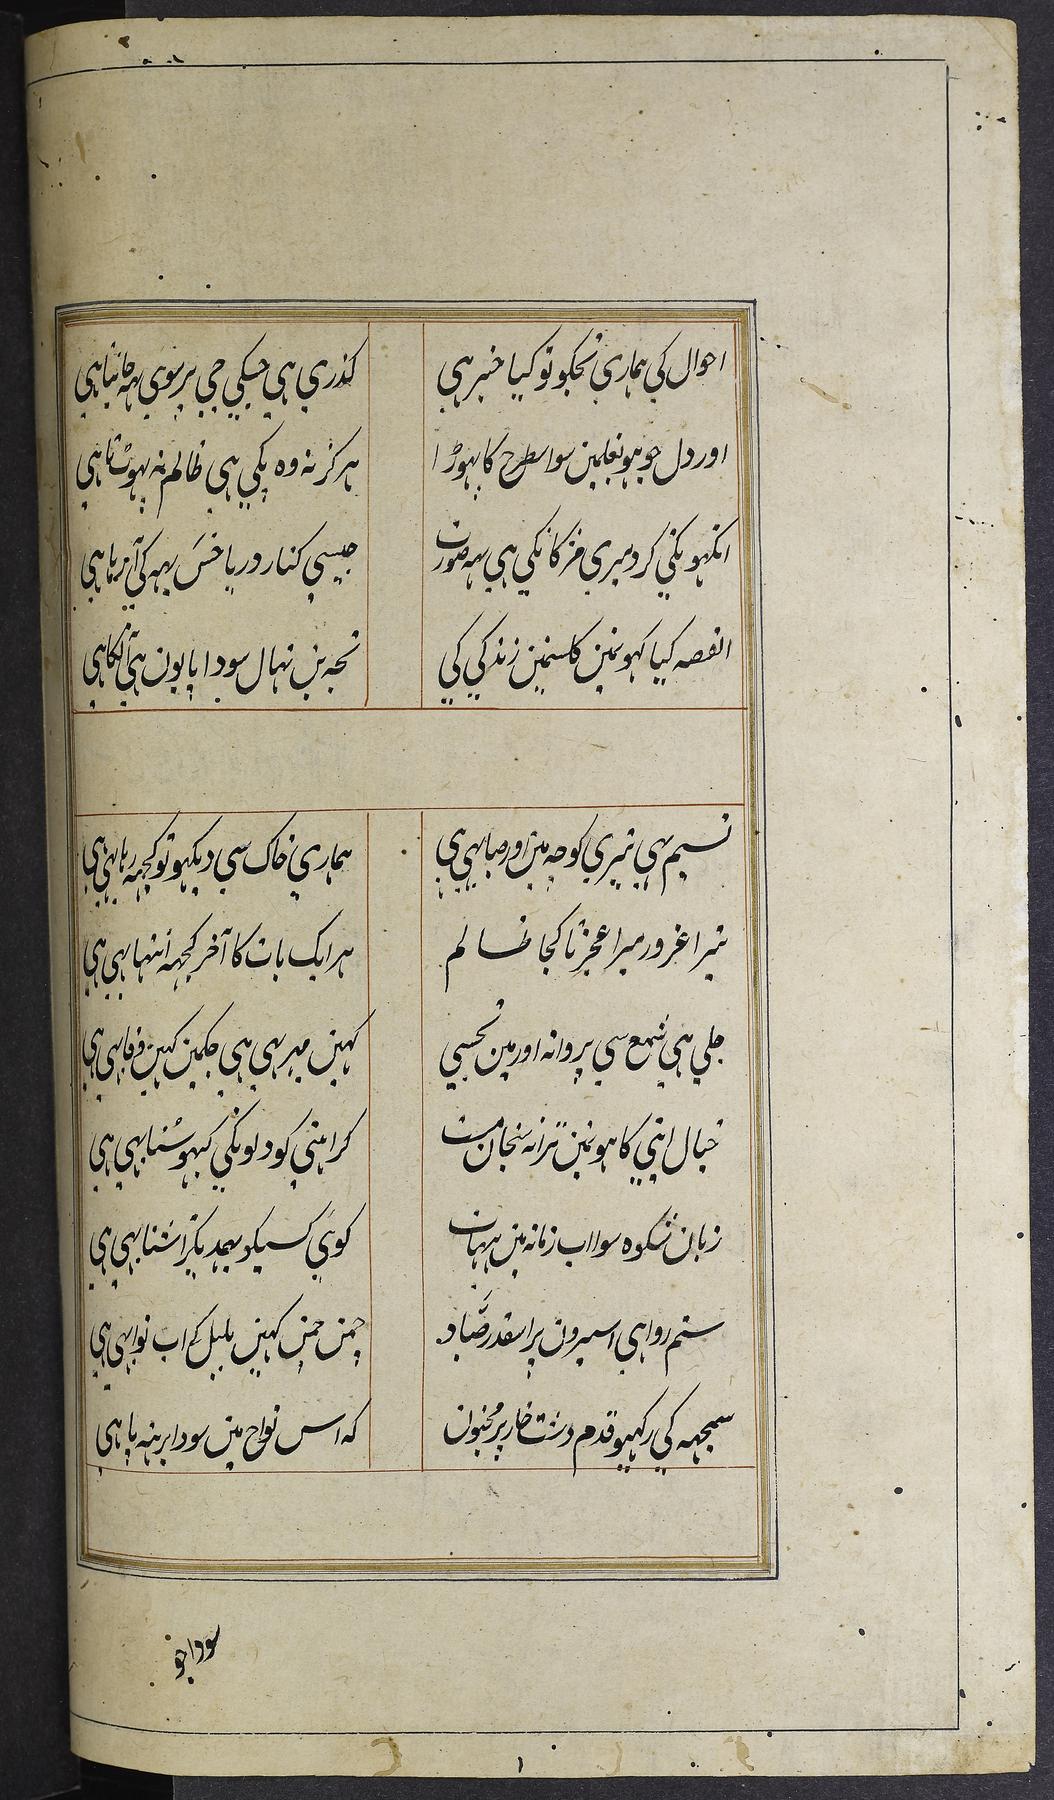 احوال کی ہماری تجکو تو کیا خبر ہی کذری ہی جسکی جی پر سوی یہہ جانتا ہی
اور دل جو ہو بغلمین سو اسطرح کا پہوڑا ہرکز نہ وہ پکی ہی ظالم نہ پہوٹتا ہی
انکہونکی کرد میری مژکانکی ہی یہہ صورت جیسی کنار دریا خس بہہ کی آ رہا ہی
القصہ کیا کہونمین کاسنمین زندکی کی تجہ بن نہال سودا یا یون ہی آ لکا ہی
نسیم بہی تیری کوچہ مین اور صبا بہی ہی ہماری خاک سی دیکہو تو کچہہ رہا بہی ہی
تیرا غرور میرا عجز تا کجا ظالم ہر ایک بات کا آخر کچہہ انتہا بہی ہی
جلی ہی شمع سی پروانہ اور مین تجسی کہین مہر بہی ہی جکمین کہین وفا بہی ہی
خیال اپنی کا ہونمین ترانہ سنجان مست کراہنی کو دلونکی کبہو سنا بہی ہی
زبان شکوہ سوا اب زمانہ مین ہیہات کوئی کسیکو بہمدیکر آشنا بہی ہی
ستم روا ہی اسیرون پر اسقدر صیاد چمن چمن کہین بلبل کے اب نوا بہی ہی
سمجہہ کی رکہیو قدم دشت خار پر مجنون کہ اس نواح مین سودا برہنہ پا ہی
سودا جو